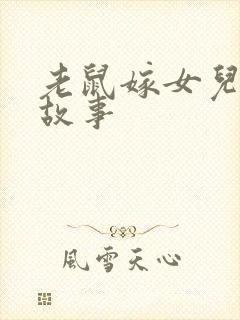 老鼠嫁女兒
故事
風雪天心